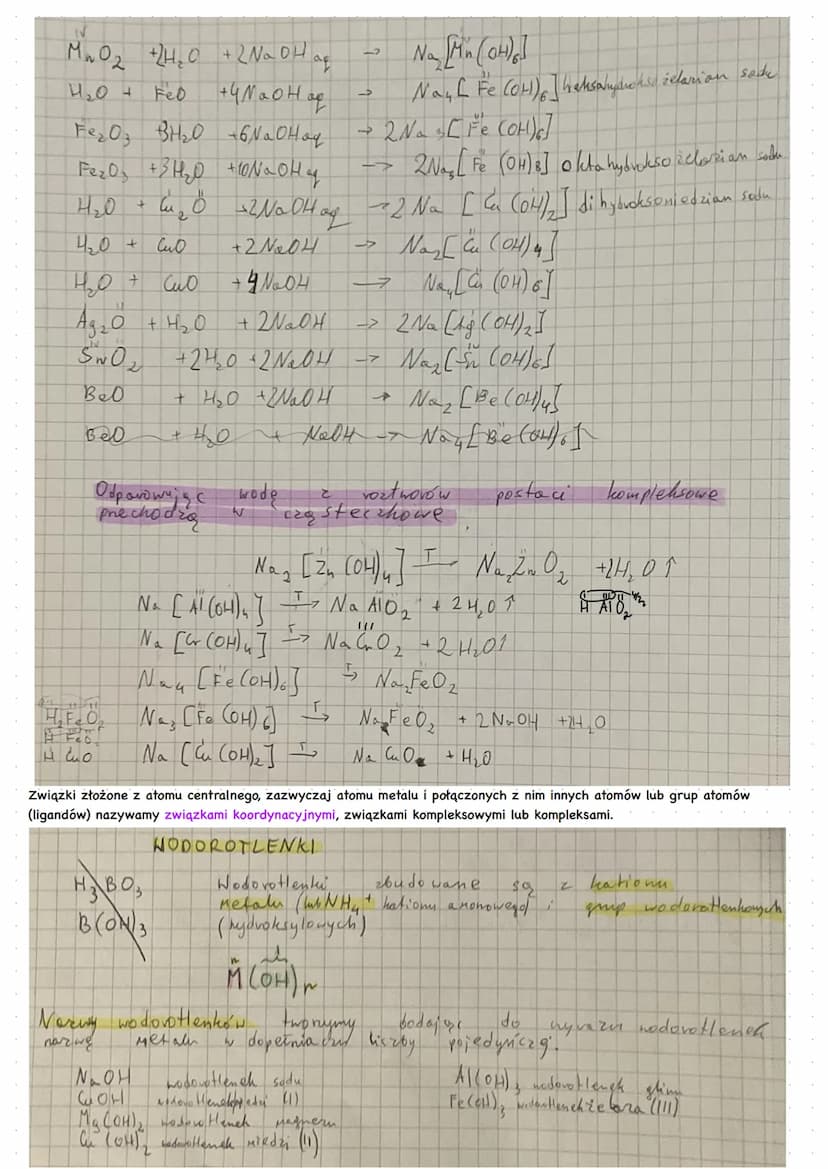 MnO₂ +2H₂O +2NaOH aq → Na₂[Mn(OH)₆]
H₂O + FeO +4NaOH aq → Na₄[Fe(OH)₆] heksahydroksożelazian sodu
Fe₂O₃ 3H₂O +6NaOH aq → 2Na₃[Fe(OH)₆]
Fe₂O₃ +3H₂O +10NaOH aq → 2Na₅[Fe(OH)8] oktahydroksożelazian sodu
H₂O + Cu₂O +2NaOH aq → 2Na [Cu(OH)₂] dihydroksomiedzian sodu
H₂O + CuO +2NaOH → Na₂[Cu(OH)4]
H₂O + CuO +4NaOH → Na₄[Cu(OH)6]
Ag₂O + H₂O + 2NaOH → 2Na[Ag(OH)₂]
SnO₂ +2H₂O +2NaOH → Na₂[Sn(OH)₆]
BeO + H₂O +2NaOH → Na₂[Be(OH)₄]
BeO + H₂O + NaOH → Na₄[Be(OH)₆]
Odparowując wodę z roztworów postaci kompleksowe
przechodzą w cząsteczkowe.
Na₂[Zn(OH)₄] T→ Na₂ZnO₂ +2H₂O↑
Na[Al(OH)₄] T→ NaAlO₂ + 2H₂O↑ H AlO₂
Na[Cr(OH)₄] T→ NaCrO₂ + 2H₂O↑
Na₄[Fe(OH)₆] T→ Na₂FeO₂
H₂FeO₂ Na₃[Fe(OH)6] T→ NaFeO₂ + 2NaOH +2H₂O
H FeO₂
H CuO Na[Cu(OH)₂] T→ Na CuO + H₂O
Związki złożone z atomu centralnego, zazwyczaj atomu metalu i połączonych z nim innych atomów lub grup atomów
(ligandów) nazywamy związkami koordynacyjnymi, związkami kompleksowymi lub kompleksami.
WODOROTLENKI
H₃BO₃ Wodorotlenki zbudowane są z kationu
metalu (lub NH₄⁺ kationu amonowego) i grup wodorotlenkowych
B(OH)₃ (hydroksylowych)
M(OH)n
Nazwy wodorotlenków tworzymy dodając do wyrazu wodorotlenek
nazwę metalu w dopełniaczu liczby pojedynczej.
NaOH wodorotlenek sodu Al(OH)₃ wodorotlenek glinu
CuOH wodorotlenek miedzi (I) Fe(OH)₃ wodorotlenek żelaza (III)
Mg(OH)₂ wodorotlenek magnezu
Cu(OH)₂ wodorotlenek miedzi (II)